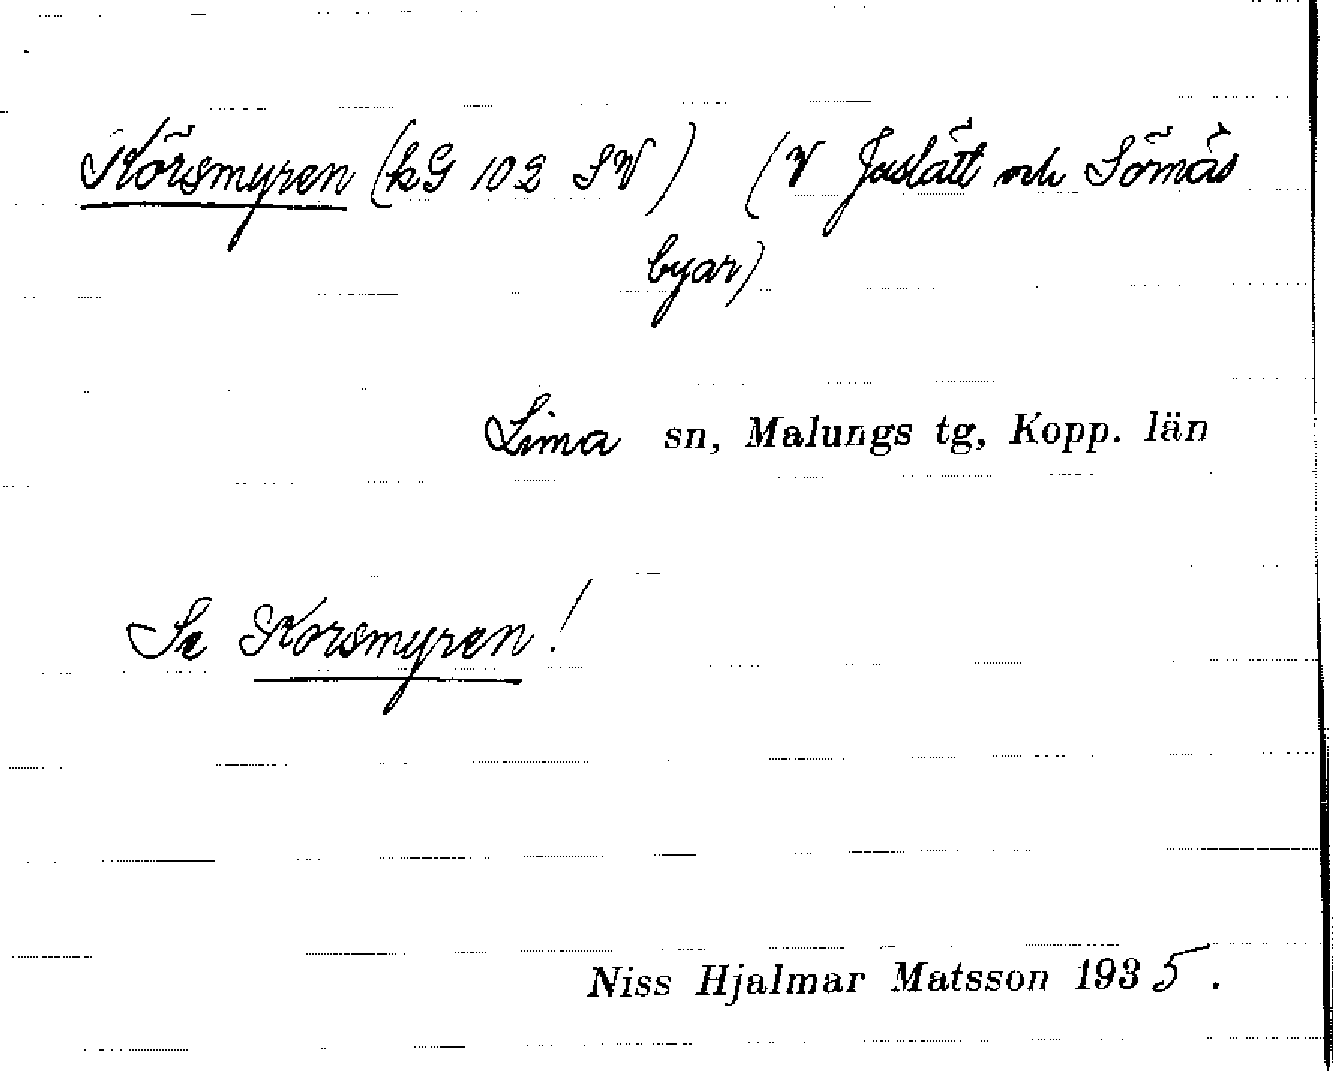 Körsmyren (kG 102 SV) (V Juslätt och Sömås
byar)
Lima sn, Malungs tg, Kopp. län
Se Korsmyren!
Niss Hjalmar Matsson 1935.